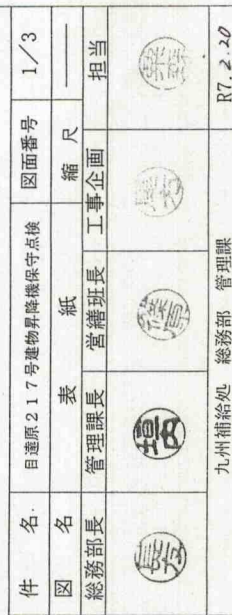 件名 目達原217号建物昇降機保守点検 図面番号 1/3
図名 表紙 縮尺 ――
総務部長 管理課長 営繕班長 工事企画 担当
九州補給処 総務部 管理課 R7.2.20